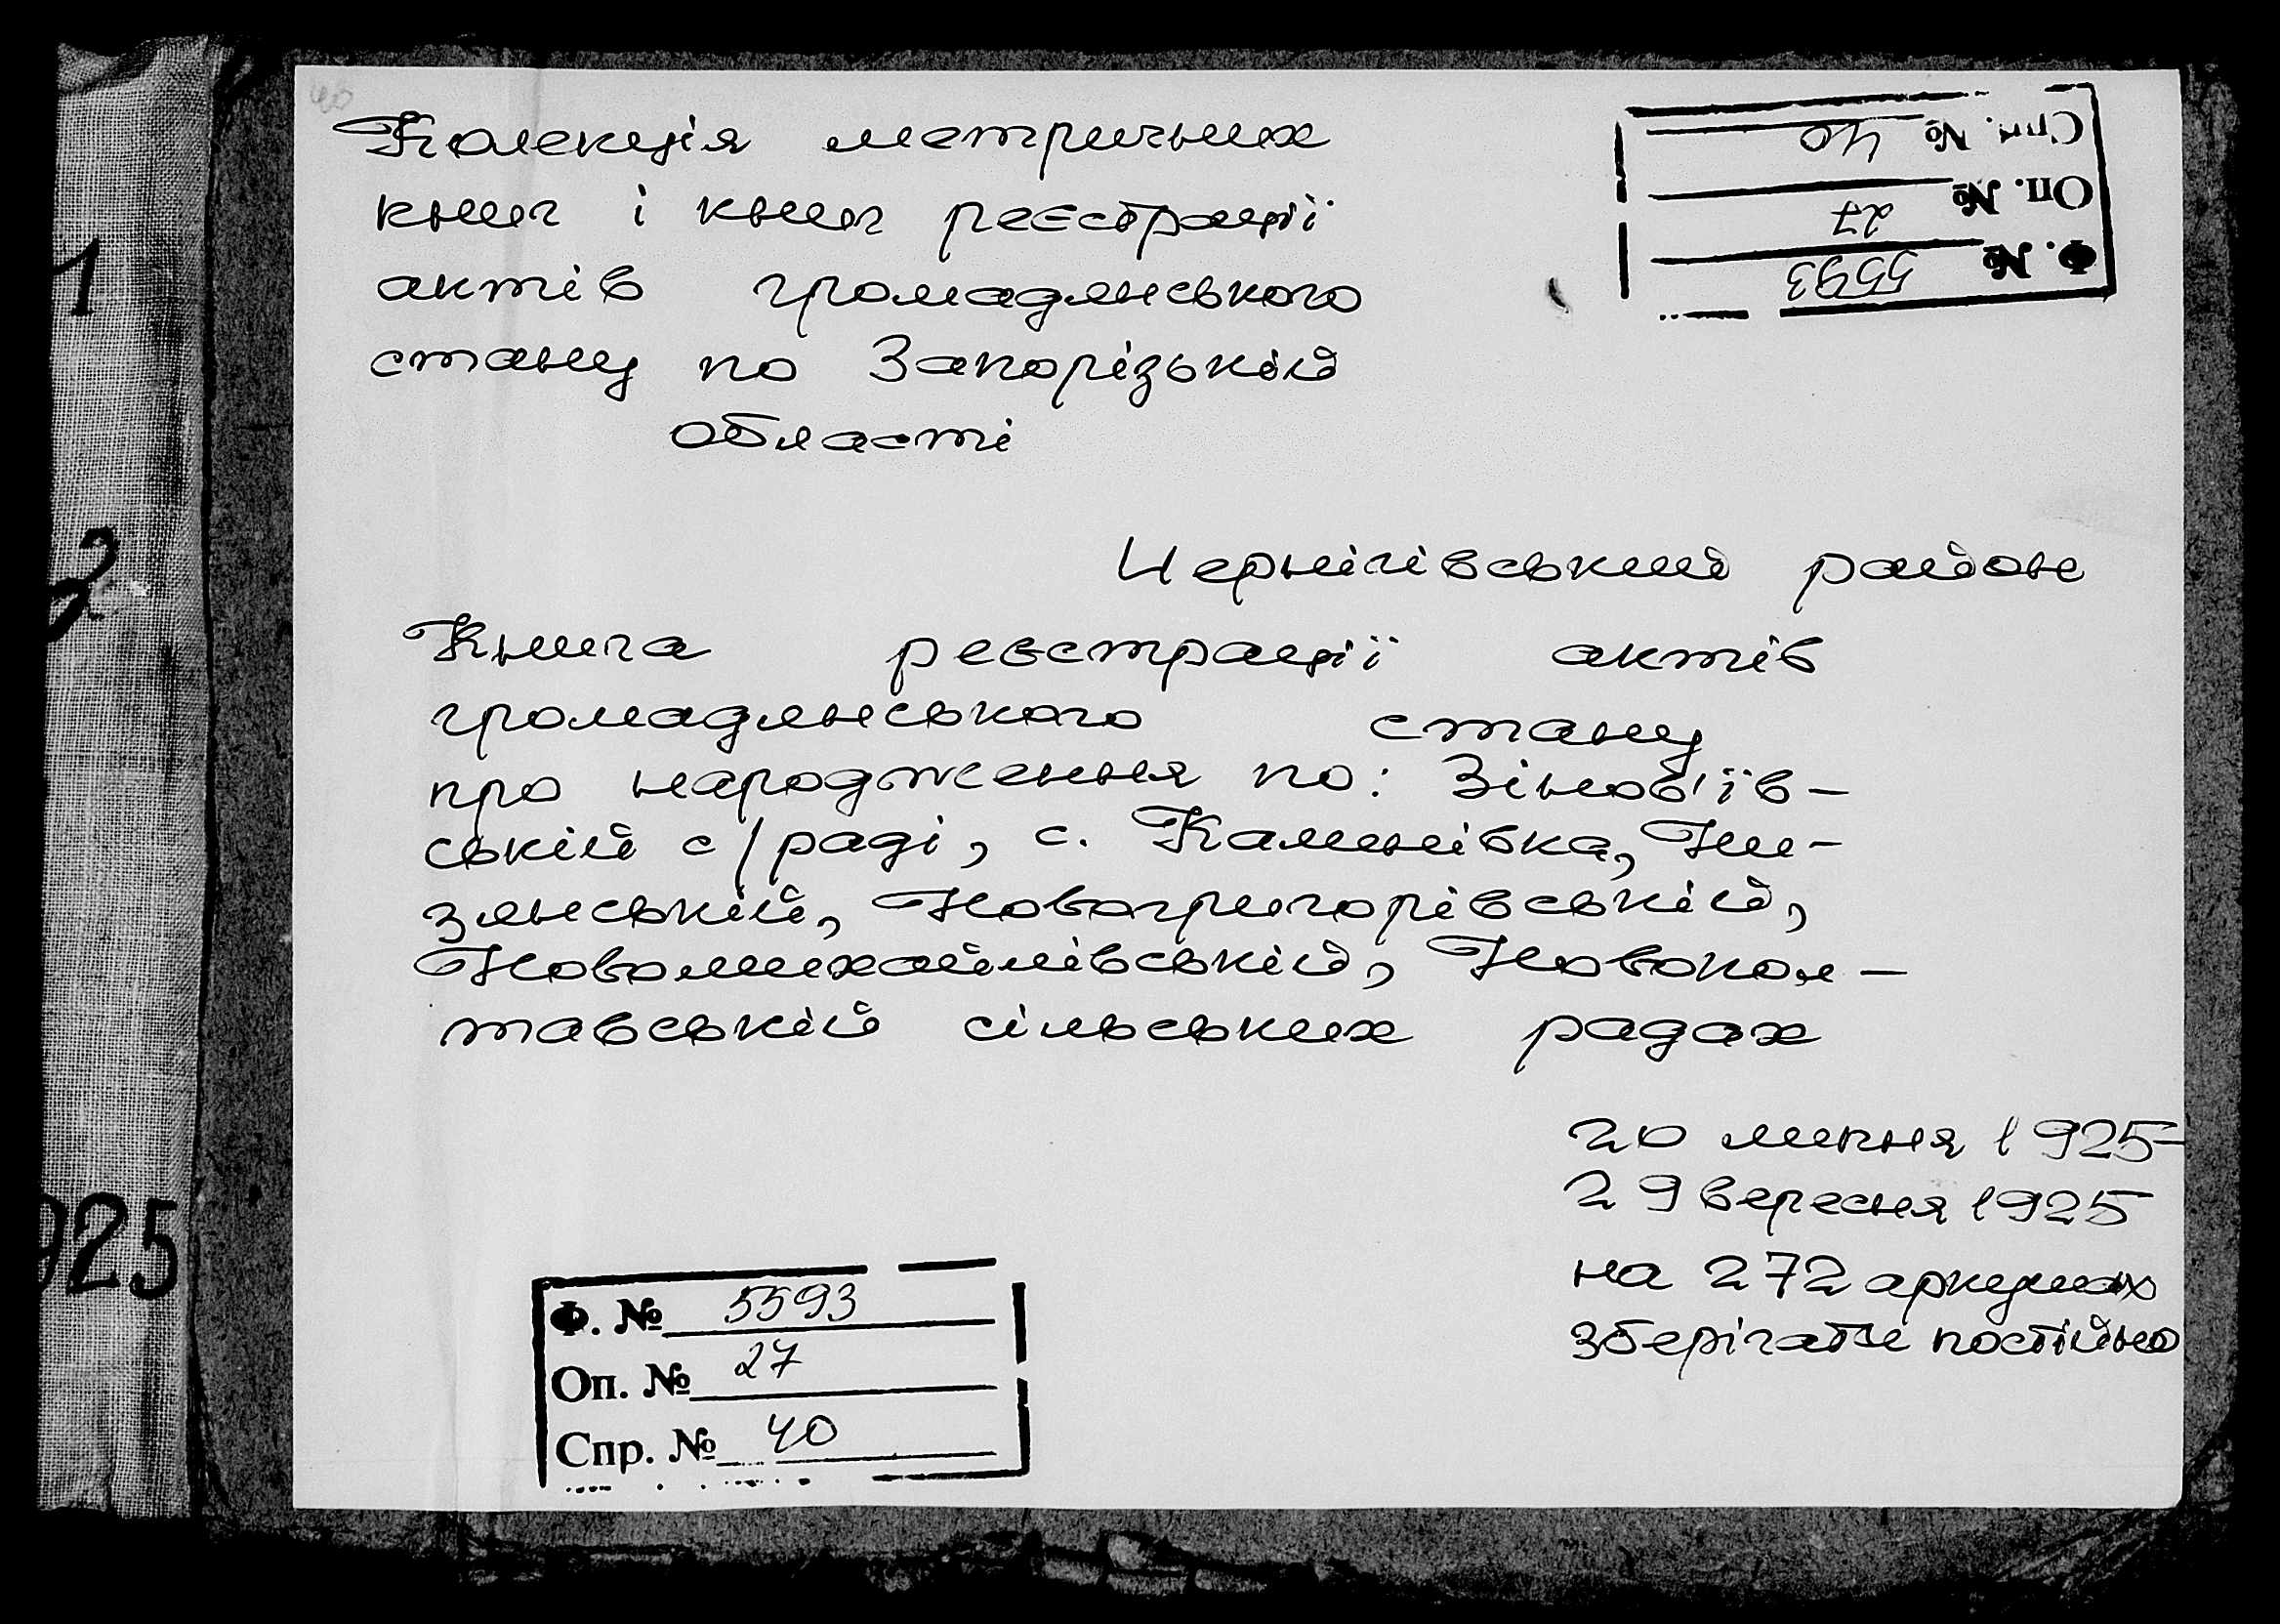 40
Колекція метричних
книг і книг реєстрації
актів громадянського
стану по Запорізькій
області
Спр. № 40
Оп. № 27
Ф. № 5593
Чернігівський район
Книга реєстрації актів
громадянського стану
про народження по: Зіноб'їв-
ській с/раді, с. Калинівка, Ни-
зянській, Новогригорівській,
Новомихайлівській, Новопол-
тавській сільських радах
20 липня 1925-
29 вересня 1925
на 272 аркушах
зберігати постійно
Ф. № 5593
Оп. № 27
Спр. № 40
1
2
925